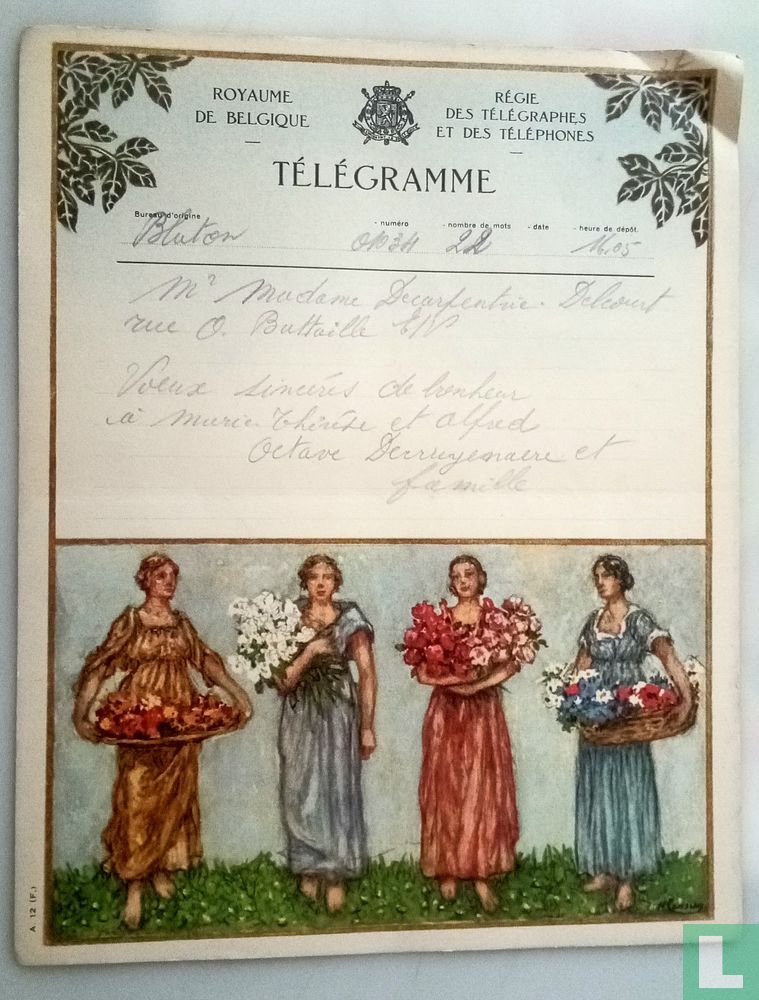 ROYAUME
DE BELGIQUE
RÉGIE
DES TÉLÉGRAPHES
ET DES TÉLÉPHONES
TÉLÉGRAMME
Bureau d'origine - numéro - nombre de mots - date - heure de dépôt.
Blaton 01034 22 16,05
Mr Madame Decarpentrie-Delcourt
rue O. Battaille E/V
Voeux sincères de bonheur
à Marie-Thérèse et Alfred
Octave Decruyenaere et
famille
A. 12 (F.)
L